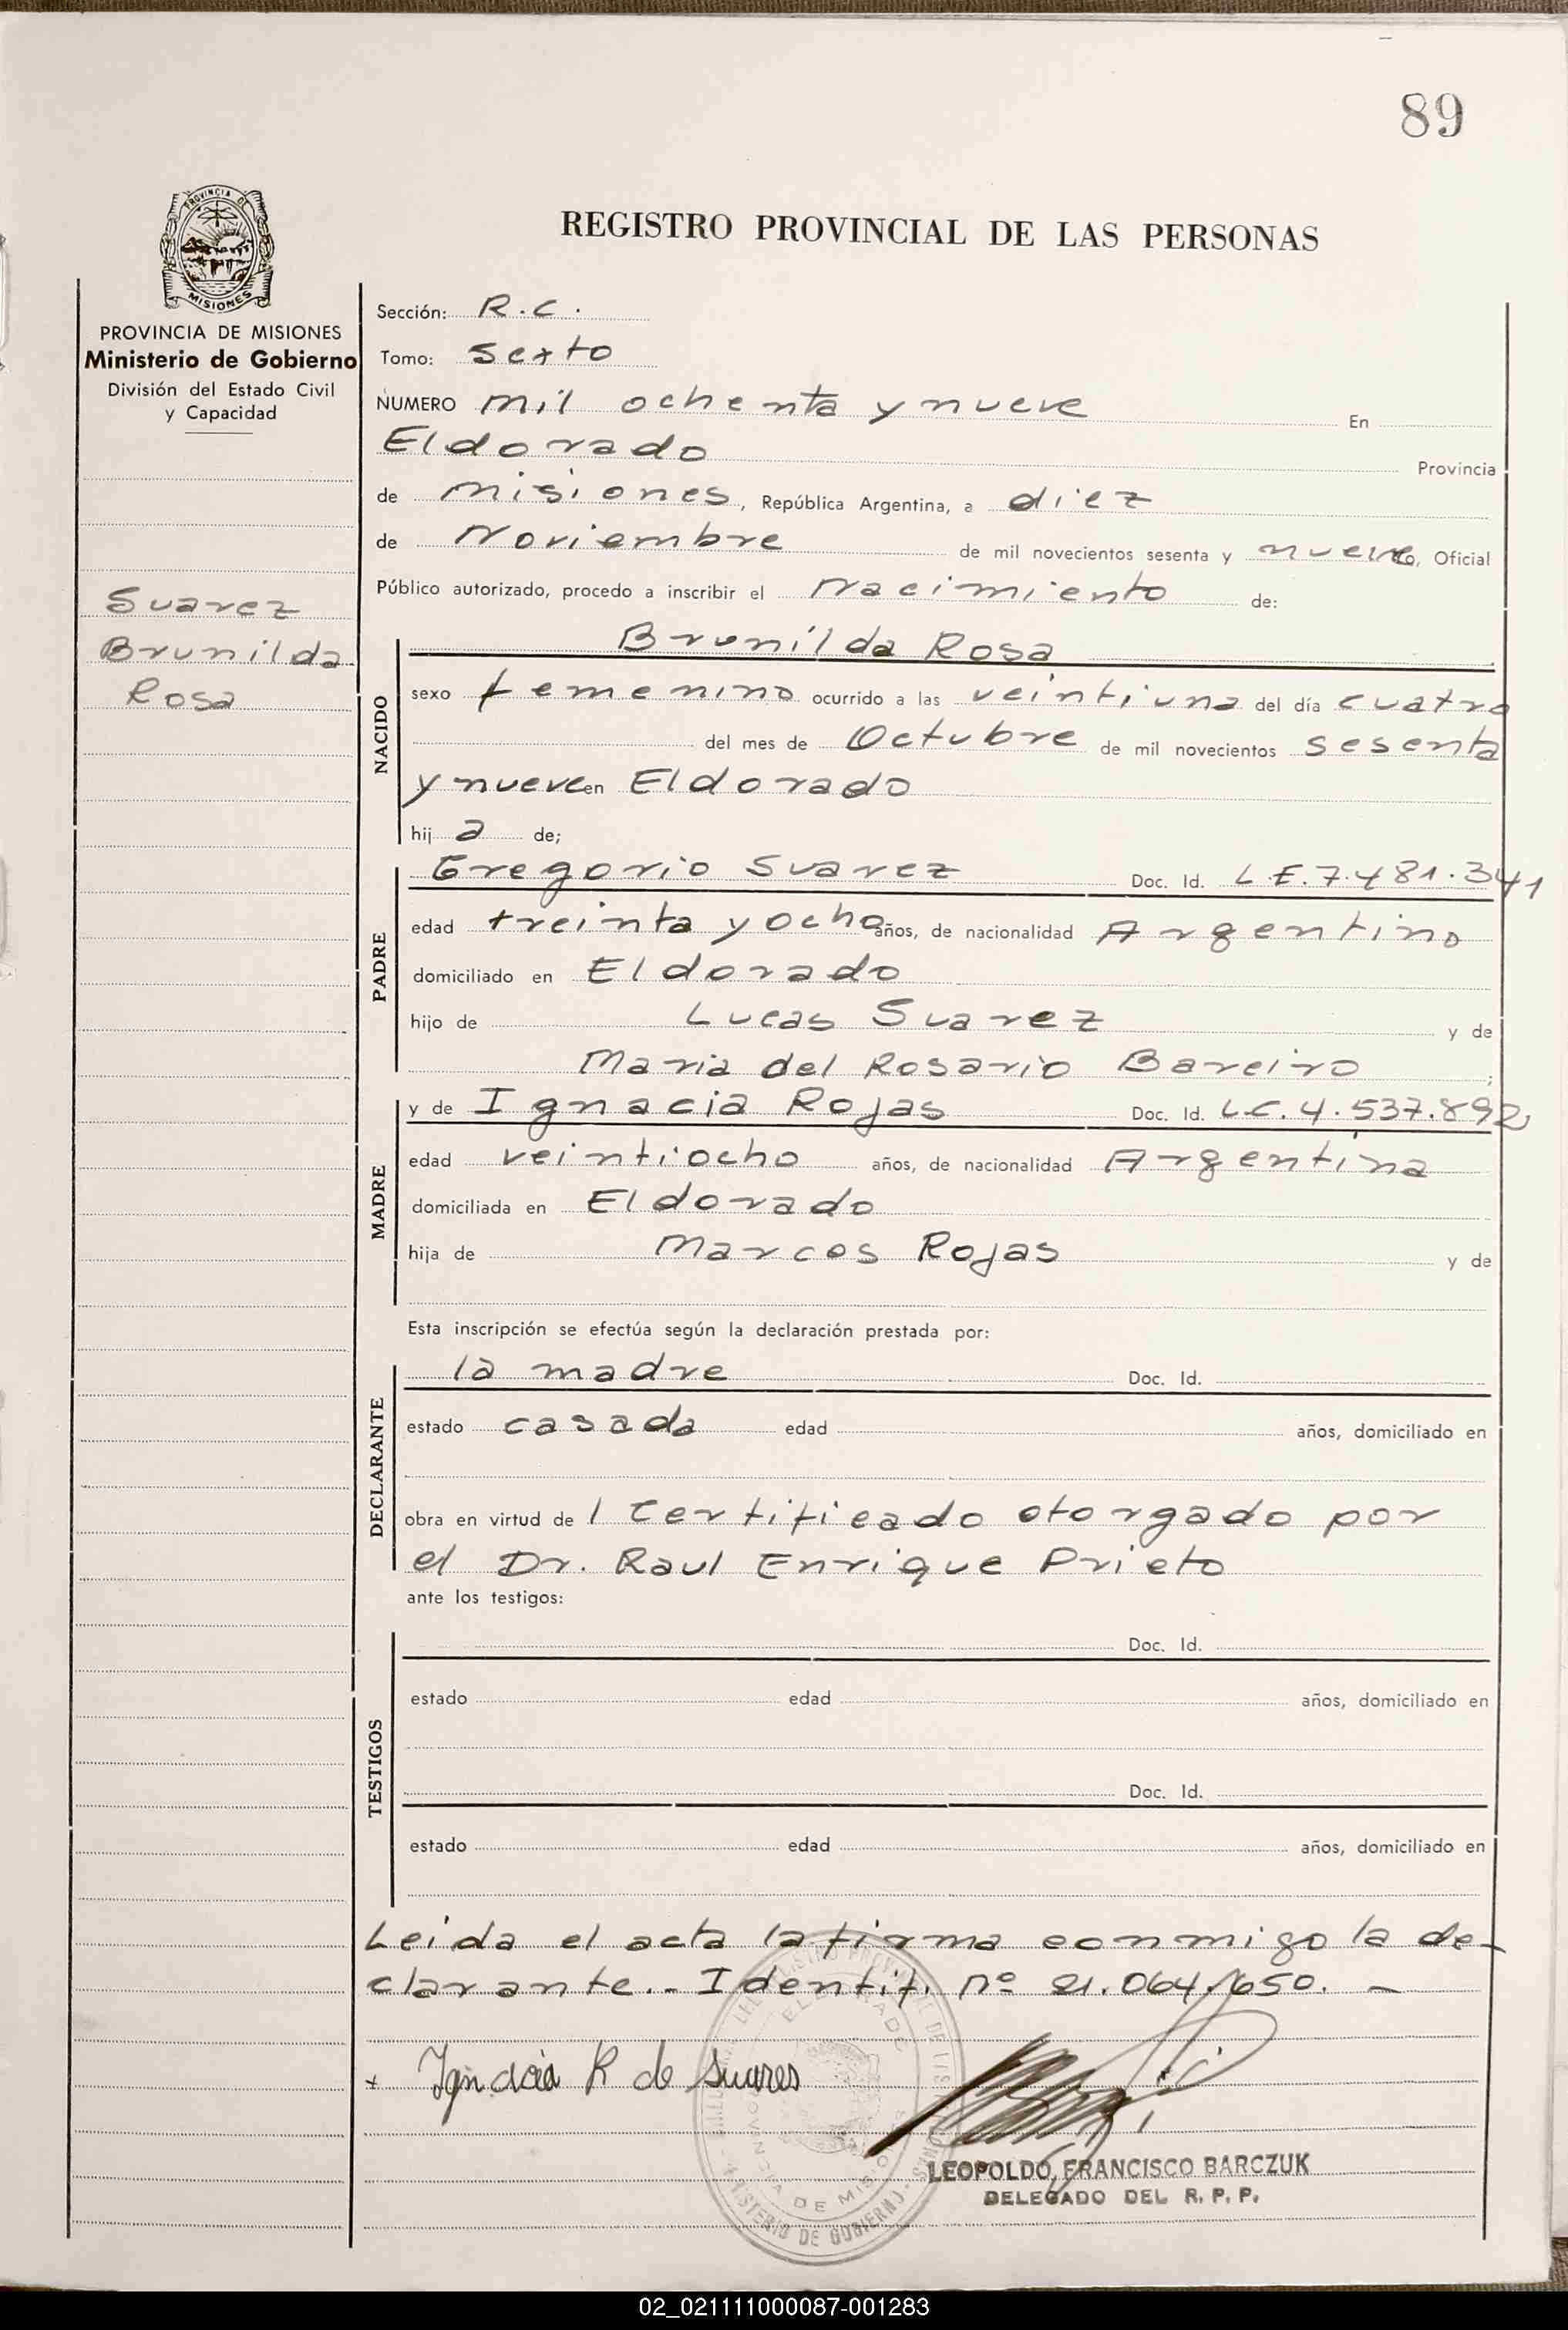 89
PROVINCIA DE
MISIONES
REGISTRO PROVINCIAL DE LAS PERSONAS
PROVINCIA DE MISIONES
Ministerio de Gobierno
División del Estado Civil
y Capacidad
Suarez
Brunilda
Rosa
Sección: R.C.
Tomo: Sexto
NUMERO mil ochenta y nueve En
Eldorado Provincia
de misiones, República Argentina, a diez
de Noviembre de mil novecientos sesenta y nueve, Oficial
Público autorizado, procedo a inscribir el Nacimiento de:
NACIDO
Brunilda Rosa
sexo femenino ocurrido a las veintiuna del día cuatro
del mes de Octubre de mil novecientos sesenta
y nueve en Eldorado
hij a de;
PADRE
Gregorio Suarez Doc. Id. L.E. 7.481.341
edad treinta y ocho años, de nacionalidad Argentino
domiciliado en Eldorado
hijo de Lucas Suarez y de
Maria del Rosario Bareiro;
MADRE
y de Ignacia Rojas Doc. Id. L.C. 4.537.892
edad veintiocho años, de nacionalidad Argentina
domiciliada en Eldorado
hija de Marcos Rojas y de
Esta inscripción se efectúa según la declaración prestada por:
DECLARANTE
la madre Doc. Id.
estado casada edad años, domiciliado en
obra en virtud de 1 Certificado otorgado por
el Dr. Raul Enrique Prieto
ante los testigos:
TESTIGOS
Doc. Id.
estado edad años, domiciliado en
Doc. Id.
estado edad años, domiciliado en
Leida el acta la firma conmigo la de-
clarante.- Identif. Nº 21.064.650. -
+ Ignacia R de Suares
LEOPOLDO FRANCISCO BARCZUK
DELEGADO DEL R. P. P.
02_021111000087-001283